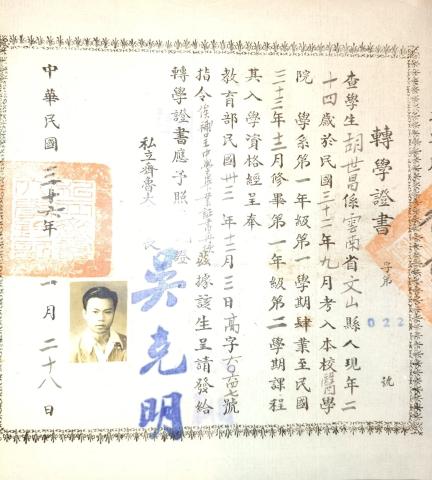 轉學證書
字第022號
查學生胡世昌係雲南省文山縣人現年二
十四歲於民國三十二年九月考入本校醫學
院 學系第一年級第一學期肄業至民國
三十三年十二月修畢第一年級第二學期課程
其入學資格經呈奉
教育部民國卅三年十二月三日高字 號
指令 茲據該生呈請發給
轉學證書應予照 證
私立齊魯大 長
吳克明
中華民國三十六年 一月二十八日